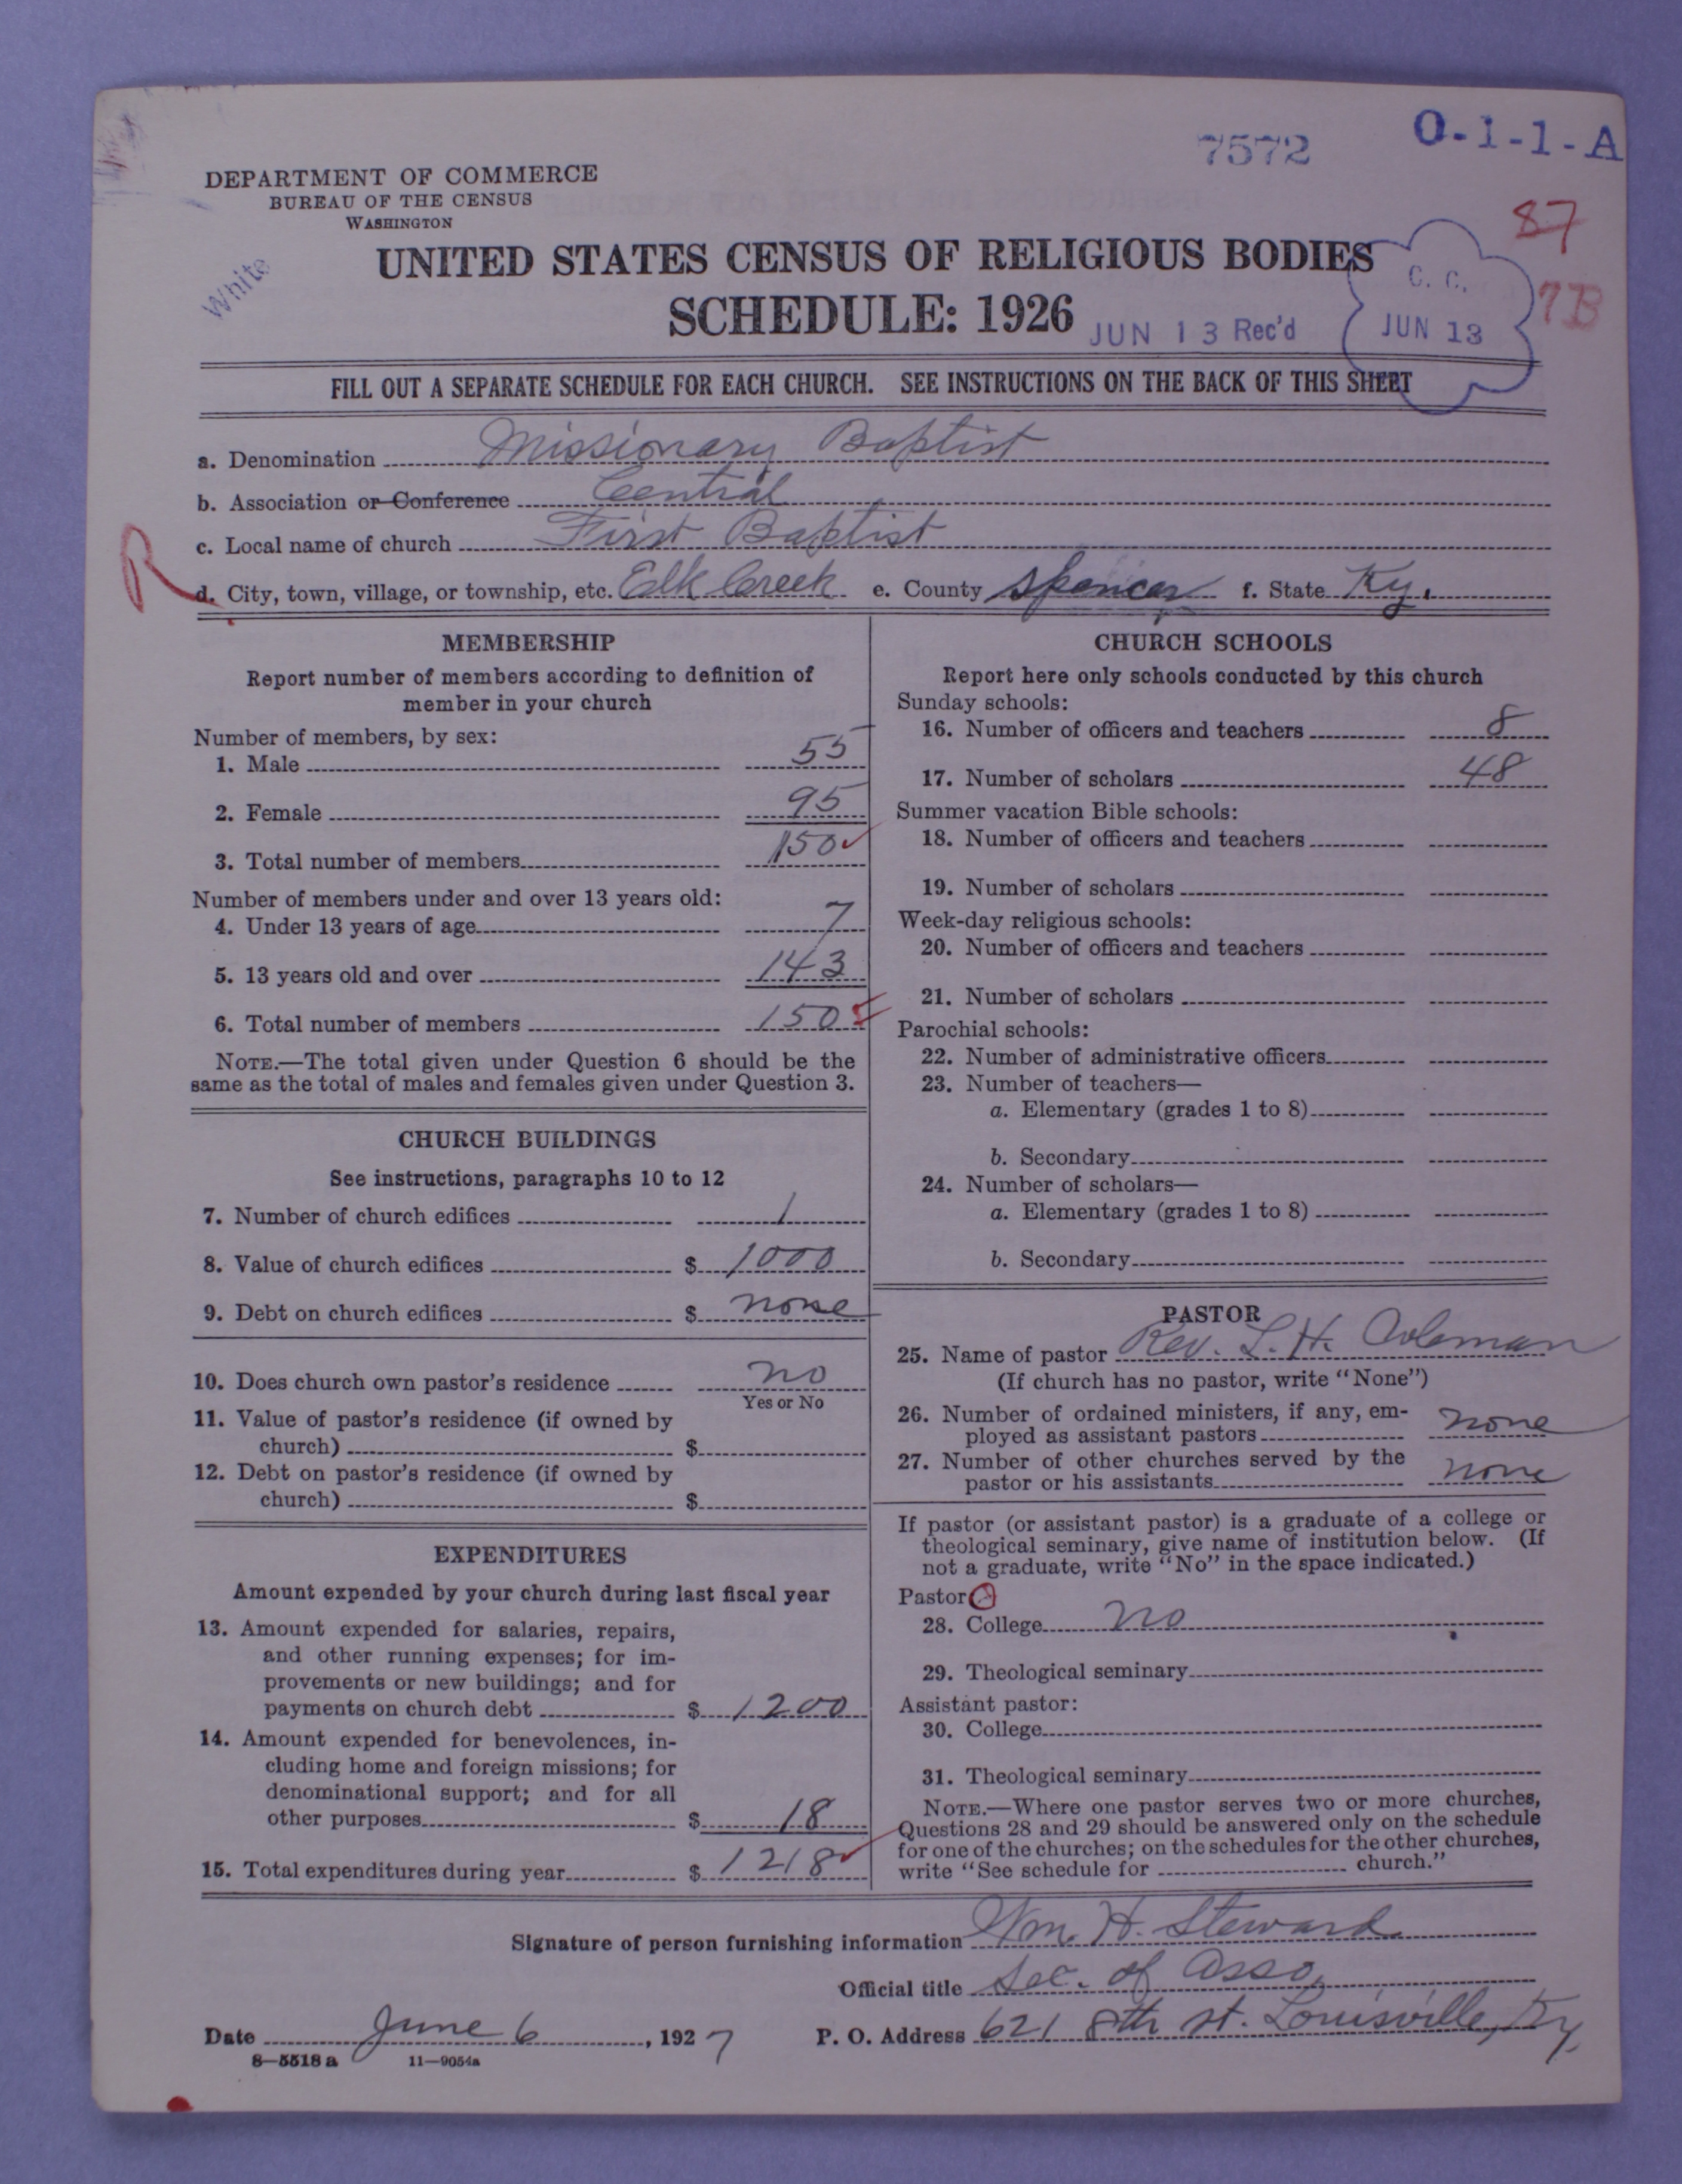 7572
O-1-1-A
DEPARTMENT OF COMMERCE
BUREAU OF THE CENSUS
WASHINGTON
87
7B
White
UNITED STATES CENSUS OF RELIGIOUS BODIES
SCHEDULE: 1926
JUN 13 Rec'd
C. C.
JUN 13
FILL OUT A SEPARATE SCHEDULE FOR EACH CHURCH. SEE INSTRUCTIONS ON THE BACK OF THIS SHEET
a. Denomination Missionary Baptist
b. Association or Conference Central
c. Local name of church First Baptist
R
d. City, town, village, or township, etc. Elk Creek e. County Spencer f. State Ky.
MEMBERSHIP
Report number of members according to definition of
member in your church
Number of members, by sex:
1. Male 55
2. Female 95
3. Total number of members 150
Number of members under and over 13 years old:
4. Under 13 years of age 7
5. 13 years old and over 143
6. Total number of members 150
NOTE.—The total given under Question 6 should be the
same as the total of males and females given under Question 3.
CHURCH BUILDINGS
See instructions, paragraphs 10 to 12
7. Number of church edifices 1
8. Value of church edifices $ 1000
9. Debt on church edifices $ none
10. Does church own pastor's residence no
Yes or No
11. Value of pastor's residence (if owned by
church) $
12. Debt on pastor's residence (if owned by
church) $
EXPENDITURES
Amount expended by your church during last fiscal year
13. Amount expended for salaries, repairs,
and other running expenses; for im-
provements or new buildings; and for
payments on church debt $ 1200
14. Amount expended for benevolences, in-
cluding home and foreign missions; for
denominational support; and for all
other purposes $ 18
15. Total expenditures during year $ 1218
CHURCH SCHOOLS
Report here only schools conducted by this church
Sunday schools:
16. Number of officers and teachers 8
17. Number of scholars 48
Summer vacation Bible schools:
18. Number of officers and teachers
19. Number of scholars
Week-day religious schools:
20. Number of officers and teachers
21. Number of scholars
Parochial schools:
22. Number of administrative officers
23. Number of teachers—
a. Elementary (grades 1 to 8)
b. Secondary
24. Number of scholars—
a. Elementary (grades 1 to 8)
b. Secondary
PASTOR
25. Name of pastor Rev. L. H. Coleman
(If church has no pastor, write "None")
26. Number of ordained ministers, if any, em-
ployed as assistant pastors none
27. Number of other churches served by the
pastor or his assistants none
If pastor (or assistant pastor) is a graduate of a college or
theological seminary, give name of institution below. (If
not a graduate, write "No" in the space indicated.)
Pastor
28. College no
29. Theological seminary
Assistant pastor:
30. College
31. Theological seminary
NOTE.—Where one pastor serves two or more churches,
Questions 28 and 29 should be answered only on the schedule
for one of the churches; on the schedules for the other churches,
write "See schedule for church."
Signature of person furnishing information Wm. H. Steward
Official title Sec. of Asso.
Date June 6, 1927 P. O. Address 621 8th st. Louisville, Ky.
8—5518 a 11—9054a